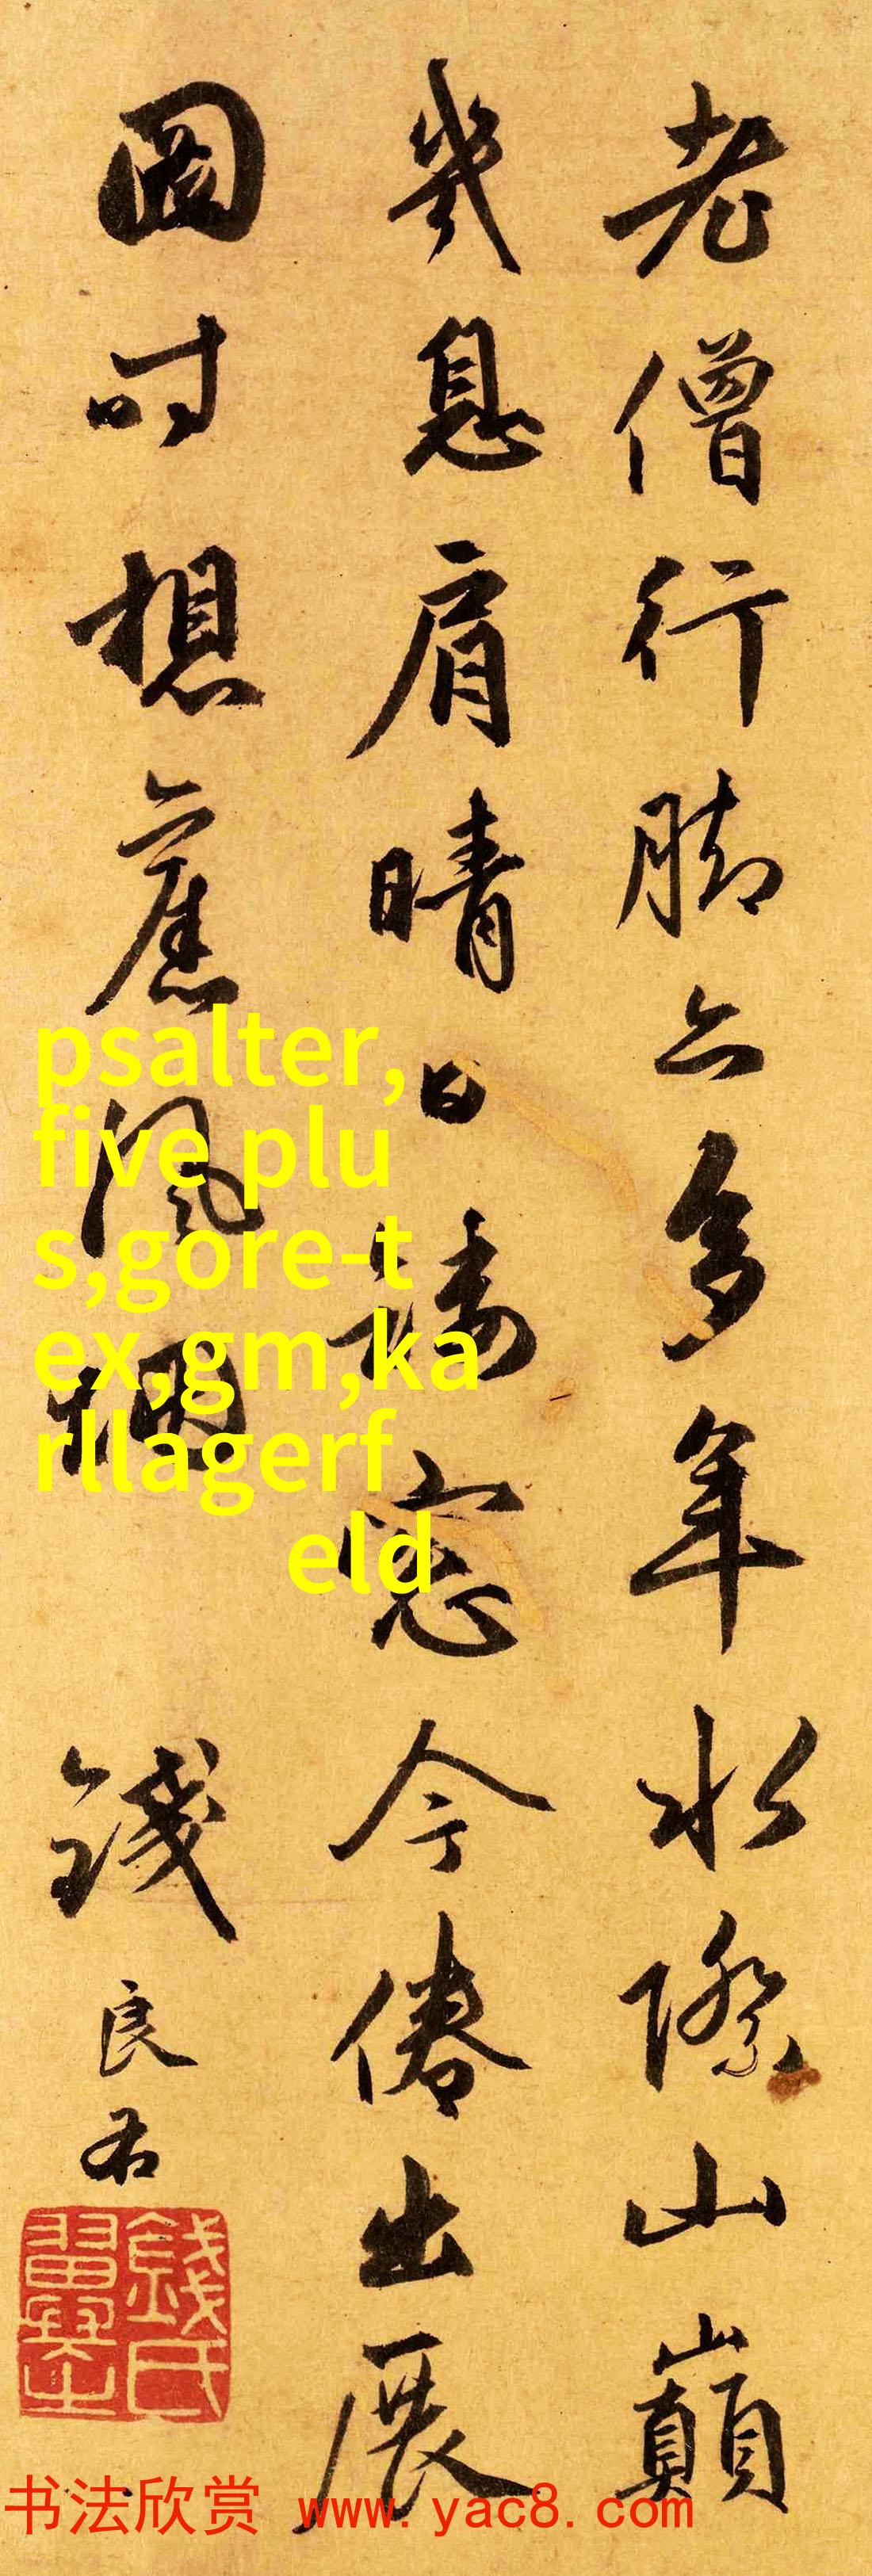 老僧行脚亦多年水際山巔
幾息肩晴日矮窓今倦出展
圖時想舊風烟
錢良右
錢氏
翼之
psalter,
five plu
s,gore-t
ex,gm,ka
rllagerf
eld
书法欣赏 www.yac8.com